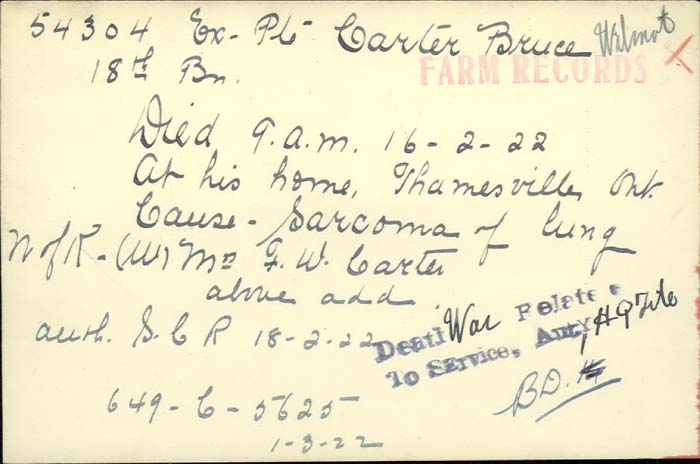 54304 Ex-Pte Carter Bruce Wilmot
18th Bn.
FARM RECORDS
Died 9.a.m. 16-2-22
At his home, Thamesville, Ont.
Cause - Sarcoma of lung
N of K - (W) Mrs F. W. Carter
above add
auth. S.C R 18-2-22
Death War Related
To Service, Auty, HQ File
649-C-5625
B.D.
1-3-22